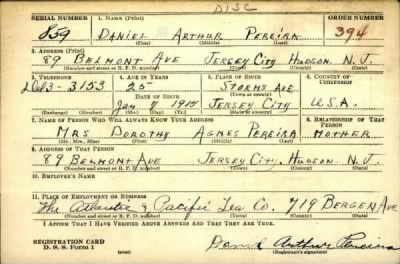 DISC
SERIAL NUMBER 1. NAME (Print) ORDER NUMBER
859 DANIEL ARTHUR PEREIRA 394
(First) (Middle) (Last)
2. ADDRESS (Print)
89 BELMONT AVE JERSEY CITY HUDSON N.J.
(Number and street or R. F. D. number) (Town) (County) (State)
3. TELEPHONE 4. AGE IN YEARS 5. PLACE OF BIRTH 6. COUNTRY OF CITIZENSHIP
3-3153 25 STORMS AVE
(Town or county)
DATE OF BIRTH
JAN 7 1915 JERSEY CITY U.S.A.
(Exchange) (Number) (Mo.) (Day) (Yr.) (State or country)
7. NAME OF PERSON WHO WILL ALWAYS KNOW YOUR ADDRESS 8. RELATIONSHIP OF THAT PERSON
MRS DOROTHY AGNES PEREIRA MOTHER
(Mr., Mrs., Miss) (First) (Middle) (Last)
9. ADDRESS OF THAT PERSON
89 BELMONT AVE JERSEY CITY, HUDSON N.J.
(Number and street or R. F. D. number) (Town) (County) (State)
10. EMPLOYER'S NAME
11. PLACE OF EMPLOYMENT OR BUSINESS
The Atlantic & Pacific Tea Co. 719 BERGEN AVE
(Number and street or R. F. D. number) (Town) (County) (State)
I AFFIRM THAT I HAVE VERIFIED ABOVE ANSWERS AND THAT THEY ARE TRUE.
REGISTRATION CARD
D. S. S. Form 1 Daniel Arthur Pereira
(Registrant's signature)